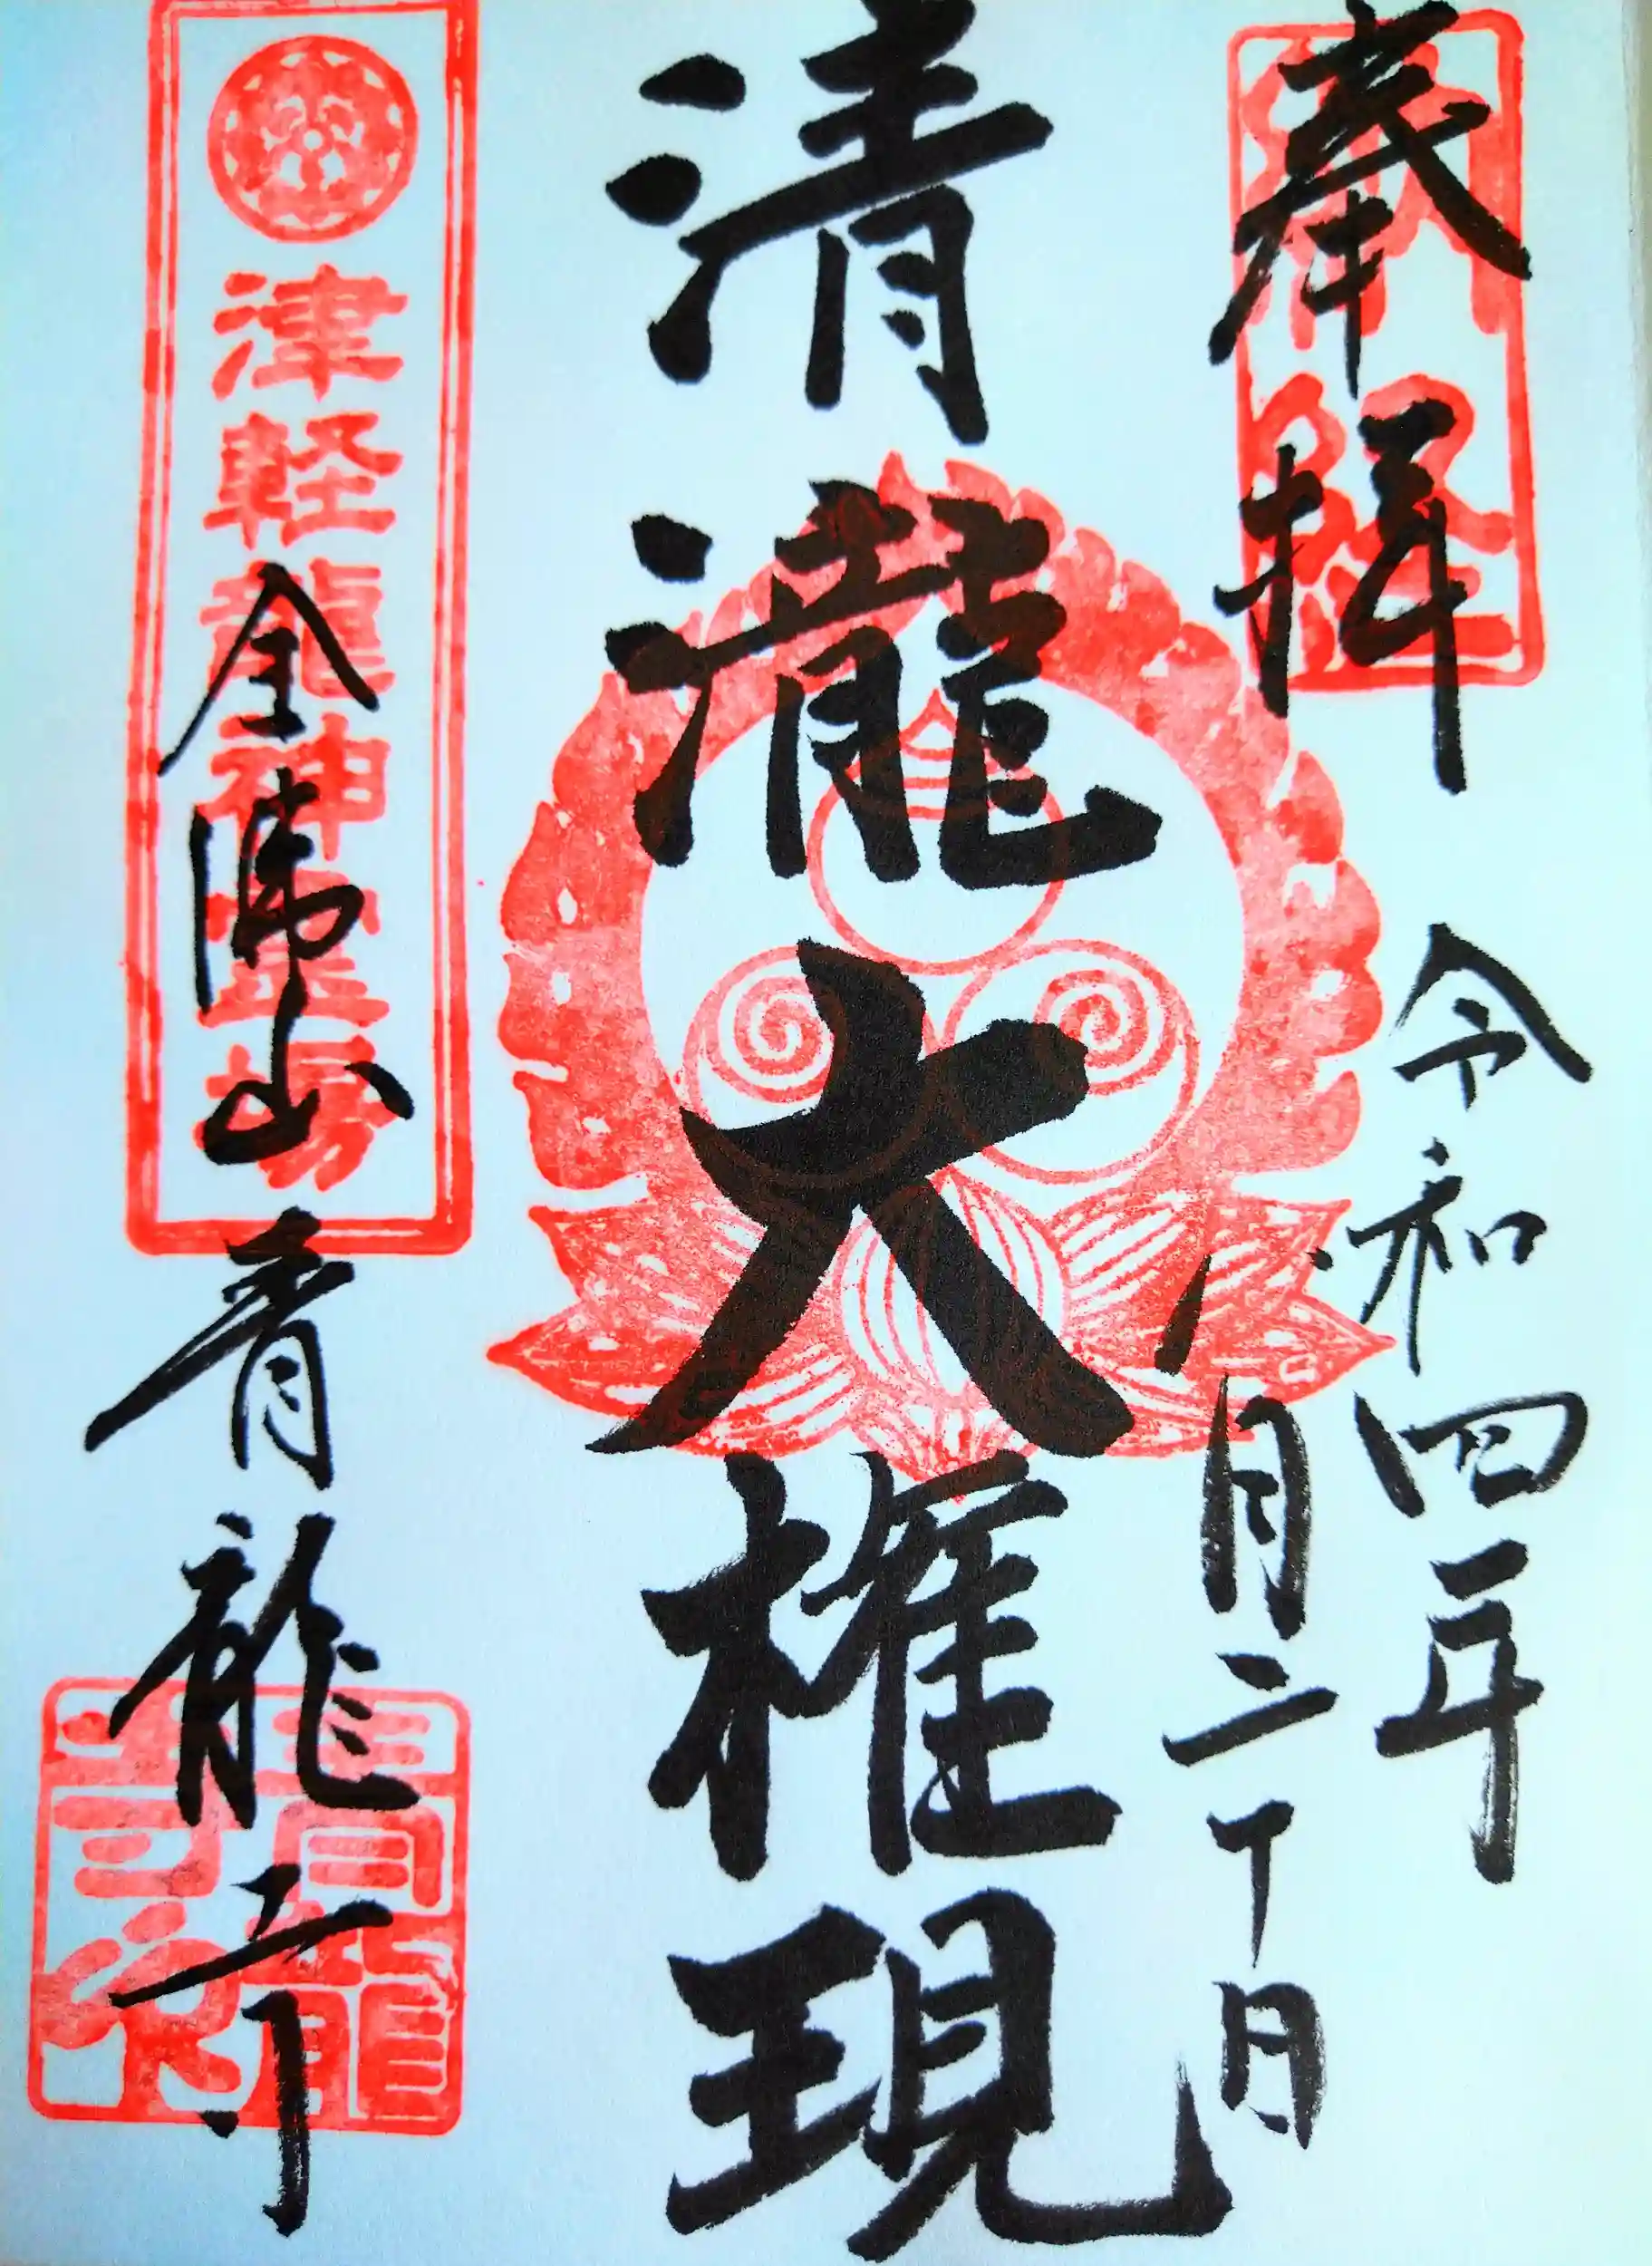 奉拝
令和四年
八月二十日
清瀧大権現
津軽龍神霊場
全佛山青龍寺
青龍寺印